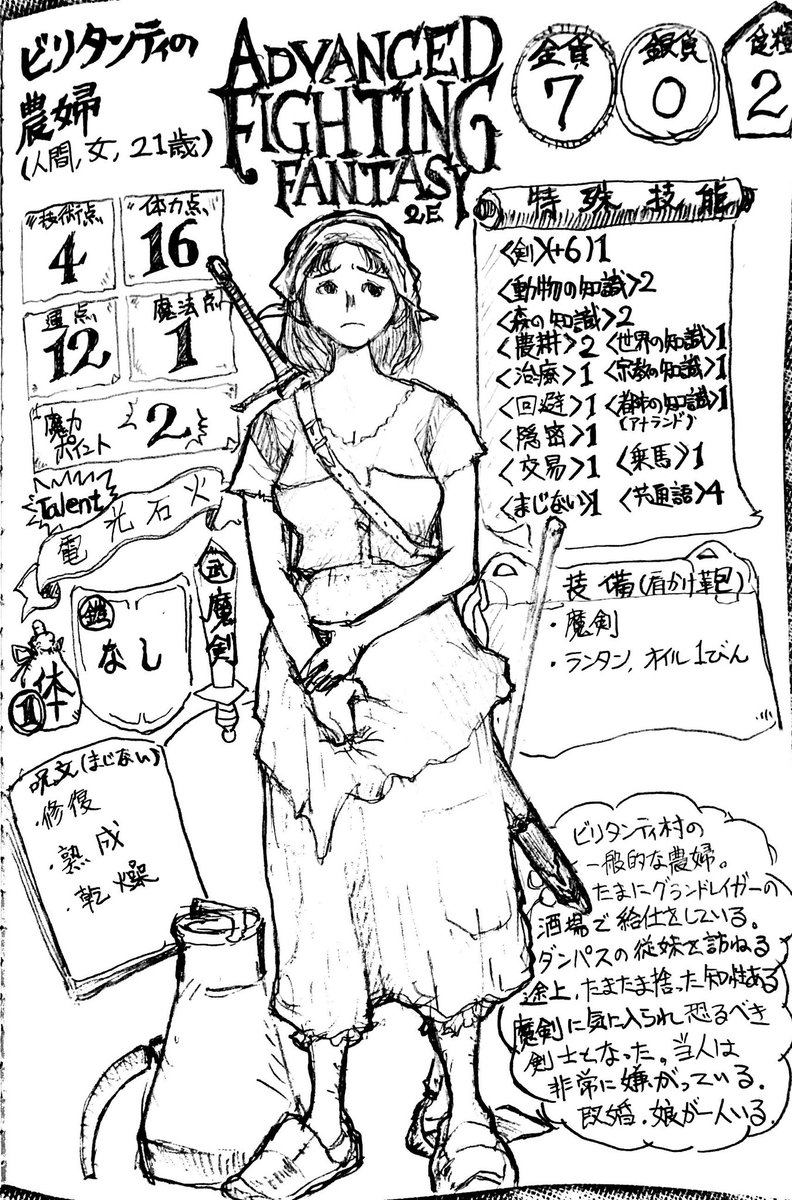 ビリタンティの
農婦
(人間,女,21歳)
ADVANCED
FIGHTING
FANTASY
2E
金貨
7
銀貨
0
食糧
2
技術点
4
体力点
16
運点
12
魔法点
1
魔力
ポイント
2
Talent
電光石火
特殊技能
〈剣〉(+6)1
〈動物の知識〉2
〈森の知識〉2
〈農耕〉2 〈世界の知識〉1
〈治療〉1 〈宗教の知識〉1
〈回避〉1 〈都市の知識〉1
(アナランド)
〈隠密〉1
〈交易〉1 〈乗馬〉1
〈まじない〉1 〈共通語〉4
鎧
なし
武
魔剣
体
1
装備(肩かけ鞄)
・魔剣
・ランタン,オイル1びん
呪文(まじない)
・修復
・熟成
・乾燥
ビリタンティ村の
一般的な農婦。
たまにグランドレイガーの
酒場で給仕をしている。
ダンパスの従妹を訪ねる
途上,たまたま捨った知性ある
魔剣に気に入られ恐るべき
剣士となった。当人は
非常に嫌がっている.
既婚.娘が一人いる.